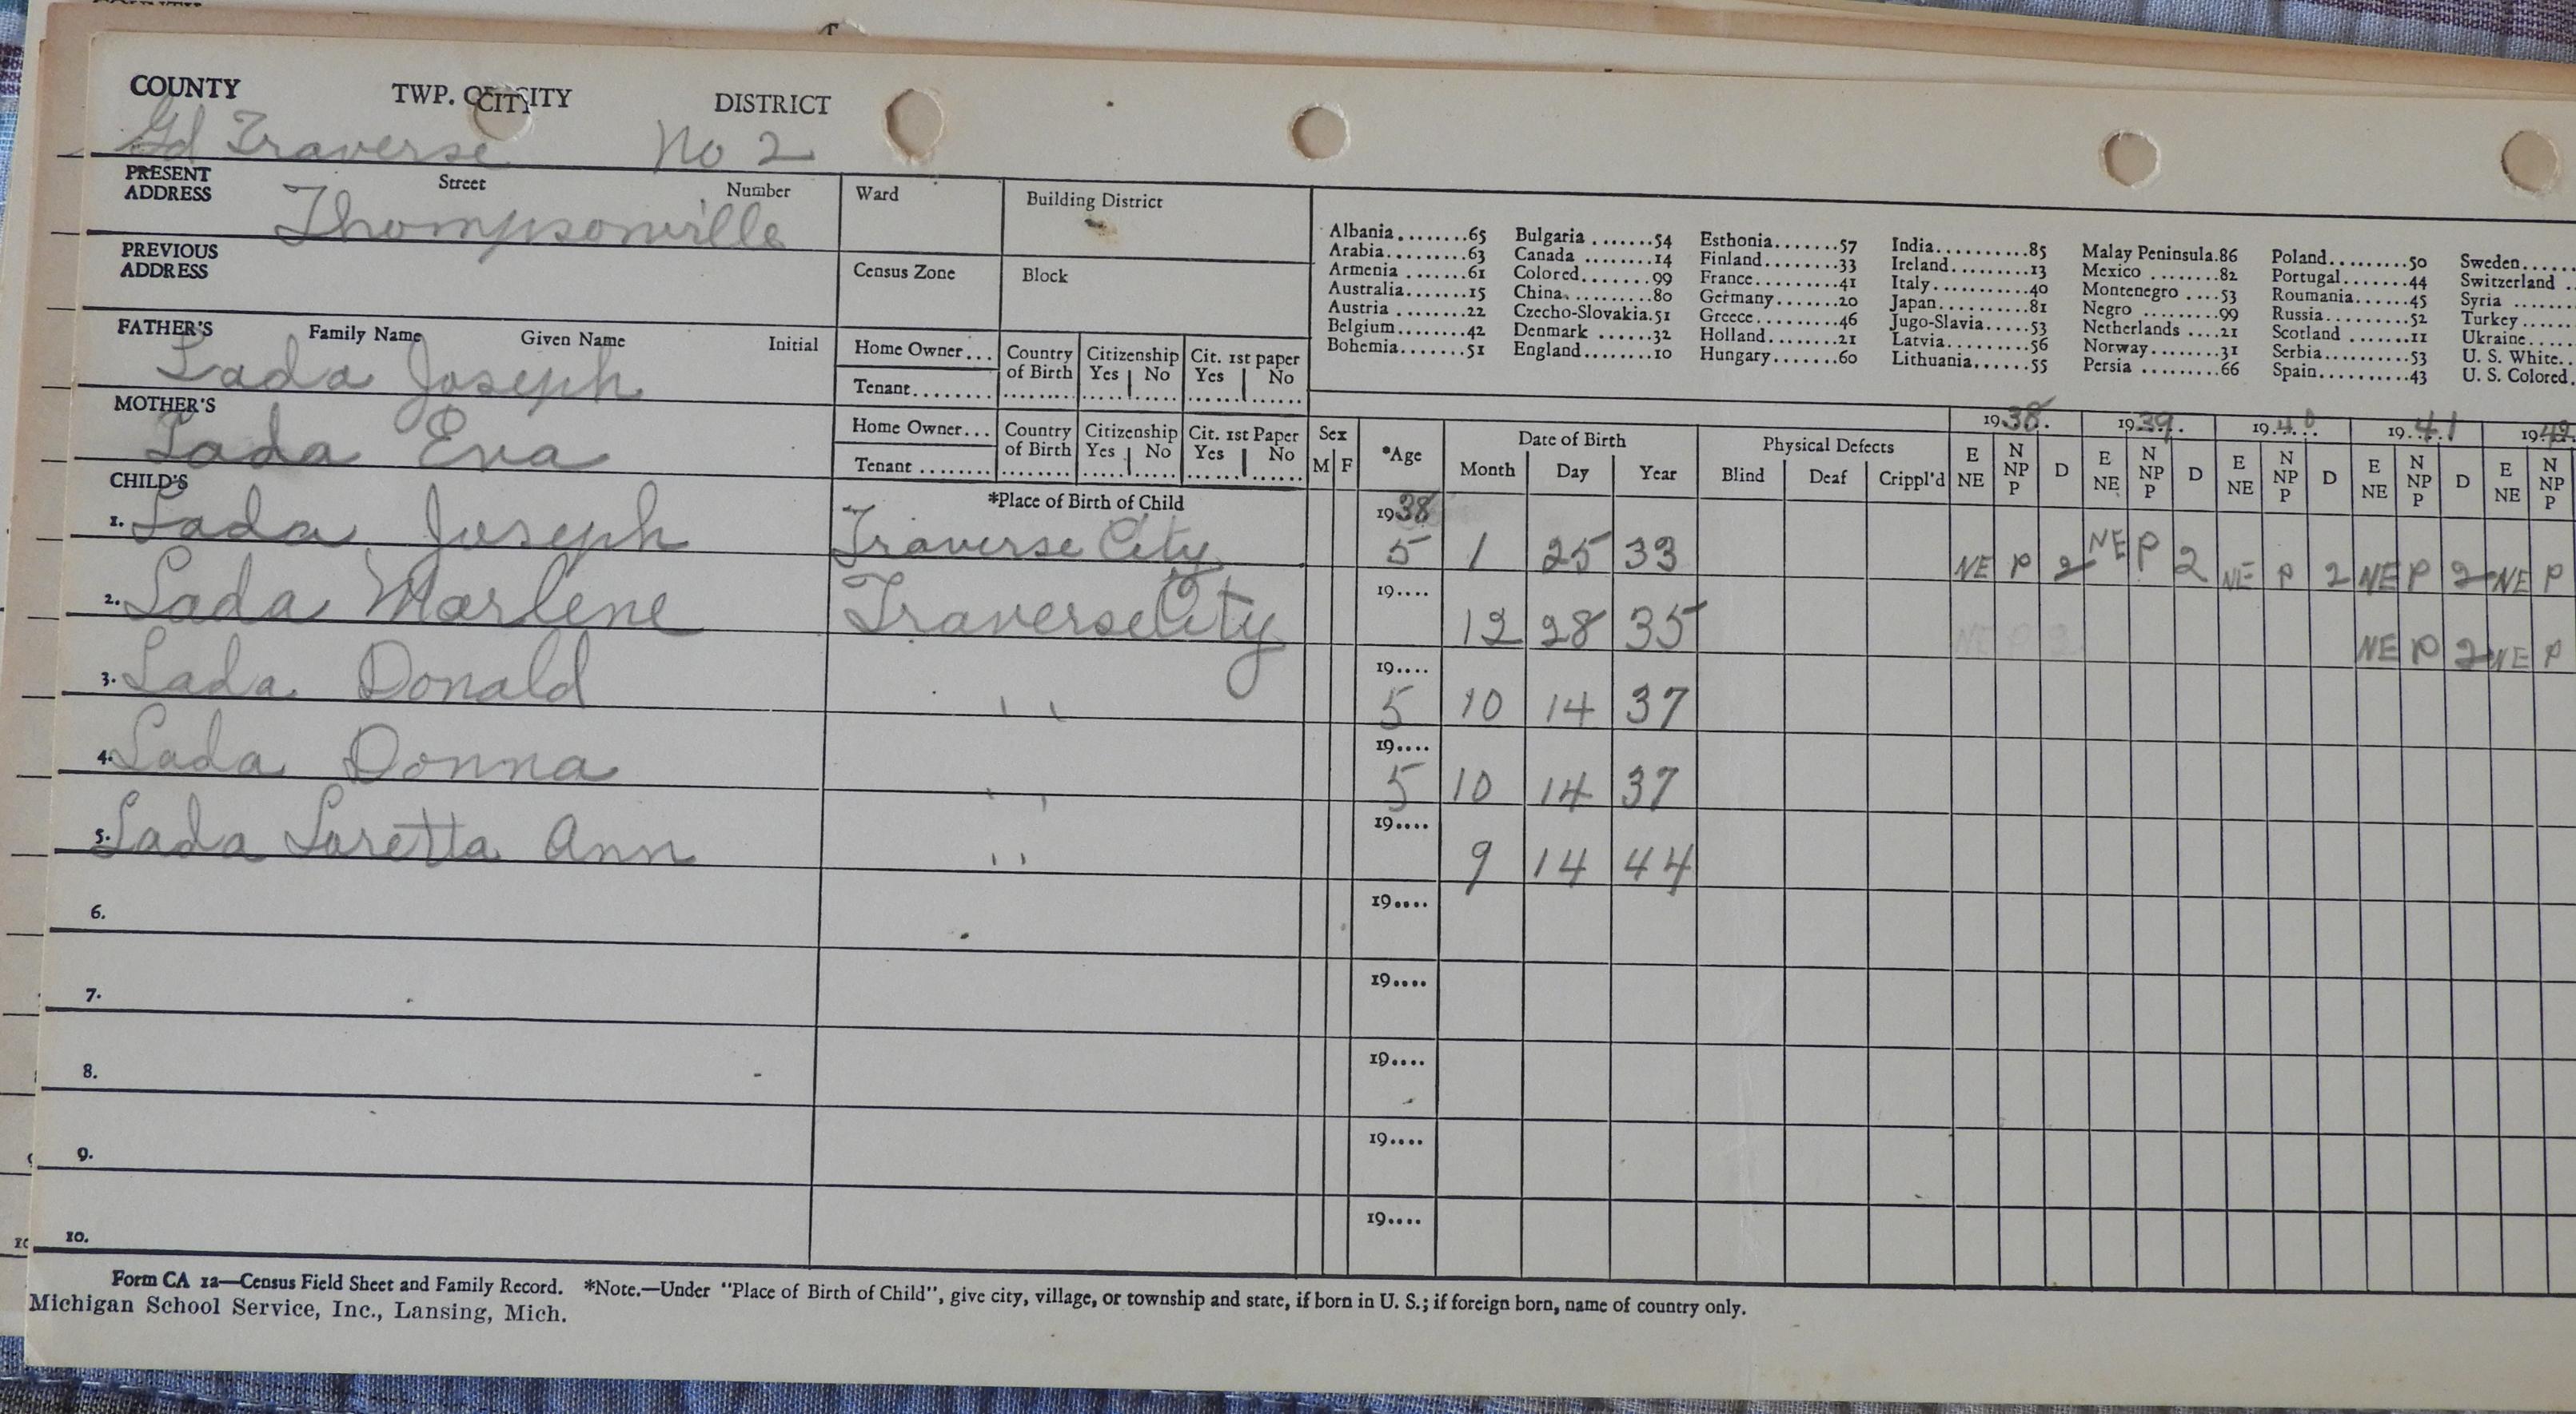 COUNTY TWP. OR CITY DISTRICT
Gd Traverse No 2
PRESENT ADDRESS Street Number Ward Building District
Thompsonville
PREVIOUS ADDRESS Census Zone Block
Albania........65 Bulgaria.......54 Esthonia.......57 India..........85 Malay Peninsula.86 Poland.........50 Sweden.....
Arabia.........63 Canada ........14 Finland........33 Ireland.........13 Mexico ........82 Portugal.......44 Switzerland ..
Armenia .......61 Colored........99 France.........41 Italy...........40 Montenegro ....53 Roumania......45 Syria ......
Australia......15 China..........80 Germany.......20 Japan..........81 Negro .........99 Russia.........52 Turkey......
Austria .......22 Czecho-Slovakia.51 Greece.........46 Jugo-Slavia.....53 Netherlands ....21 Scotland .......11 Ukraine.....
Belgium.......42 Denmark ......32 Holland........21 Latvia.........56 Norway........31 Serbia.........53 U. S. White...
Bohemia.......51 England........10 Hungary.......60 Lithuania......55 Persia .........66 Spain..........43 U. S. Colored.
FATHER'S Family Name Given Name Initial Home Owner... Country of Birth Citizenship Yes No Cit. 1st paper Yes No
Lada Joseph Tenant........
MOTHER'S Home Owner... Country of Birth Citizenship Yes No Cit. 1st Paper Yes No
Lada Eva Tenant ........
Sex M F *Age Date of Birth Month Day Year Physical Defects Blind Deaf Crippl'd
1938. 1939. 1940. 1941 1942
E NE N NP P D E NE N NP P D E NE N NP P D E NE N NP P D E NE N NP P
CHILD'S *Place of Birth of Child
1. Lada Joseph Traverse City 1938 5 1 25 33 NE P 2 NE P 2 NE P 2 NE P 2 NE P
2. Lada Marlene Traverse City 19.... 12 28 35 NE P 2 NE P 2 NE P
3. Lada Donald '' 19.... 5 10 14 37
4. Lada Donna '' 19.... 5 10 14 37
5. Lada Loretta Ann '' 19.... 9 14 44
6. 19....
7. 19....
8. 19....
9. 19....
10. 19....
Form CA 1a—Census Field Sheet and Family Record. *Note.—Under "Place of Birth of Child", give city, village, or township and state, if born in U. S.; if foreign born, name of country only.
Michigan School Service, Inc., Lansing, Mich.